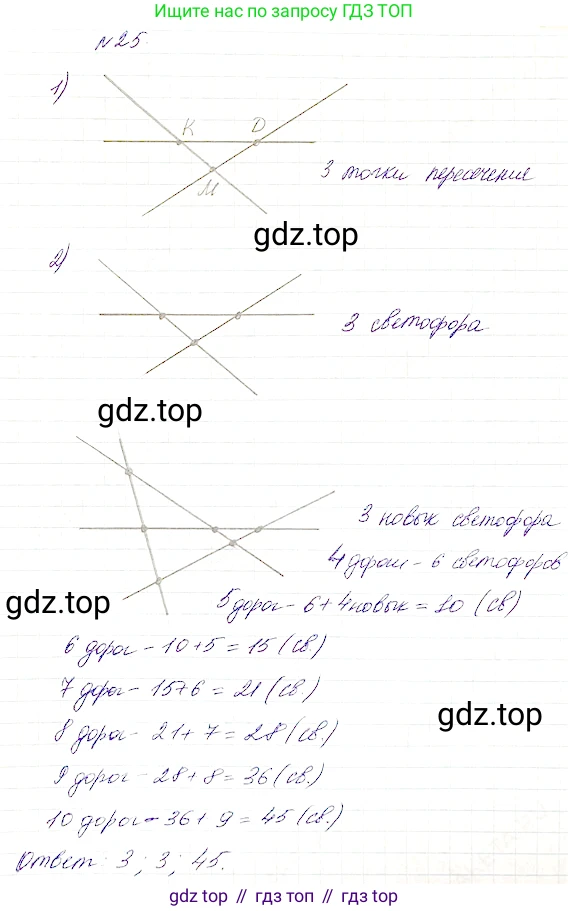 Ищите нас по запросу ГДЗ ТОП
№25.
1)
K D
M
3 точки пересечения
gdz.top
2)
3 светофора
gdz.top
3 новых светофора
4 дороги - 6 светофоров
gdz.top
5 дорог - 6 + 4 новых = 10 (св)
6 дорог - 10 + 5 = 15 (св.)
7 дорог - 15 + 6 = 21 (св.)
gdz.top
8 дорог - 21 + 7 = 28 (св.)
9 дорог - 28 + 8 = 36 (св.)
10 дорог - 36 + 9 = 45 (св.)
Ответ: 3; 3; 45.
gdz.top // гдз топ // gdz.top